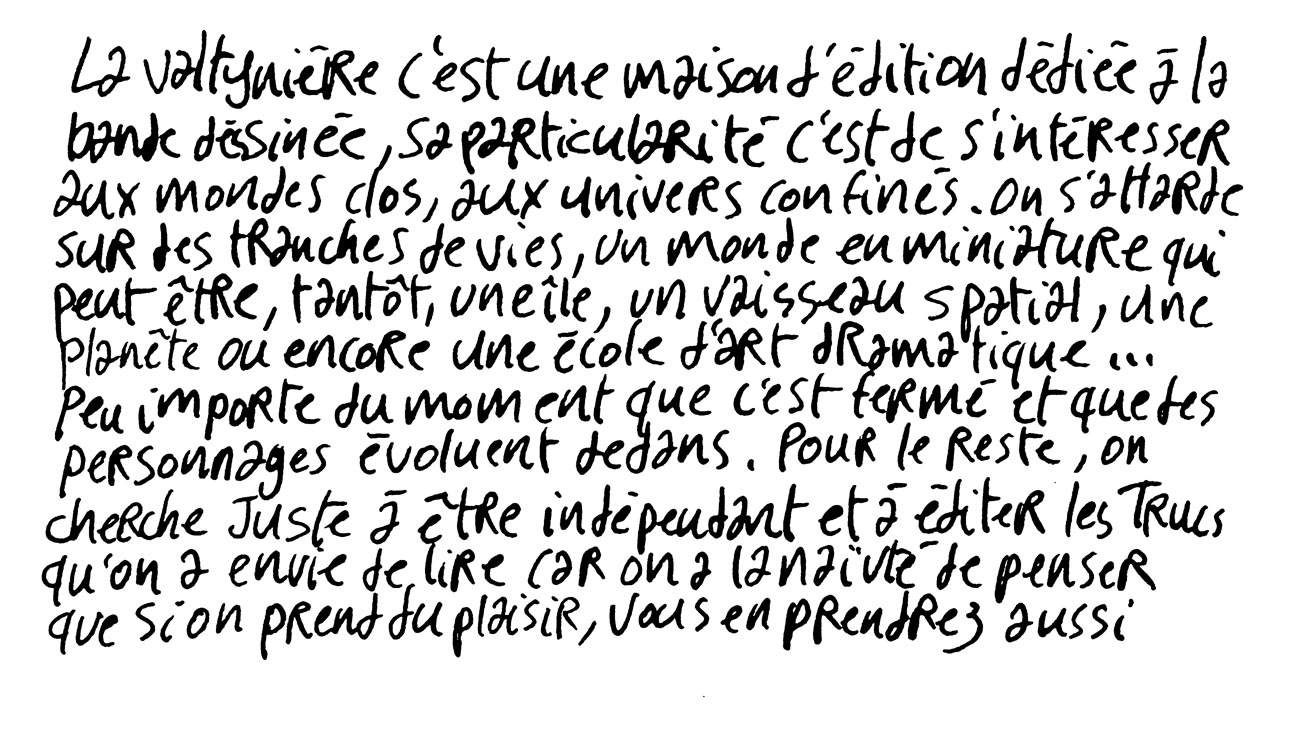 La valtynière c'est une maison d'édition dédiée à la
bande déssinée, sa particularité c'est de s'intéresser
aux mondes clos, aux univers confinés. On s'attarde
sur des tranches de vies, un monde en miniature qui
peut être, tantôt, une île, un vaisseau spatial, une
planète ou encore une école d'art dramatique ...
Peu importe du moment que c'est fermé et que des
personnages évoluent dedans. Pour le reste, on
cherche juste à être indépendant et à éditer les trucs
qu'on a envie de lire car on a la naïvté de penser
que si on prend du plaisir, vous en prendrez aussi